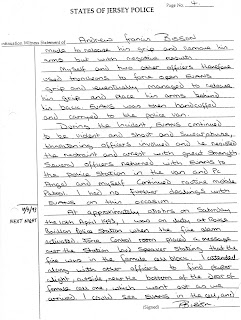 STATES OF JERSEY POLICE
Page No. 4
Witness Statement of Andrew Francis Bisson
made to release his grip and remove his
arms but with negative result.
Myself and two other officers therefore
used truncheons to force open Evans
his grip and eventually managed to release
his grip and place his arms behind
his back. Evans was then handcuffed
and carried to the police van.
During the incident Evans continued
to be violent and shout and swear abuse,
threatening officers involved and he resisted
the restraint and arrest with great strength.
Several officers returned with Evans to
the police station in the van and Pc
Angel and myself continued routine mobile
patrol. I had no further dealings with
Evans on this occasion.
At approximately
on Saturday
I was on duty at Rouge
Bouillon Police Station when the fire alarm
activated. Force Control room placed a message
over the Station's Speaker Stating that the
fire was in the female cell block. I attended
along with other officers to find
paper
alight, outside, near the bottom of the door of
female cell one, which went out as we
arrived. I could see Evans in the cell, and
(Signed) Bisson
NEXT NIGHT